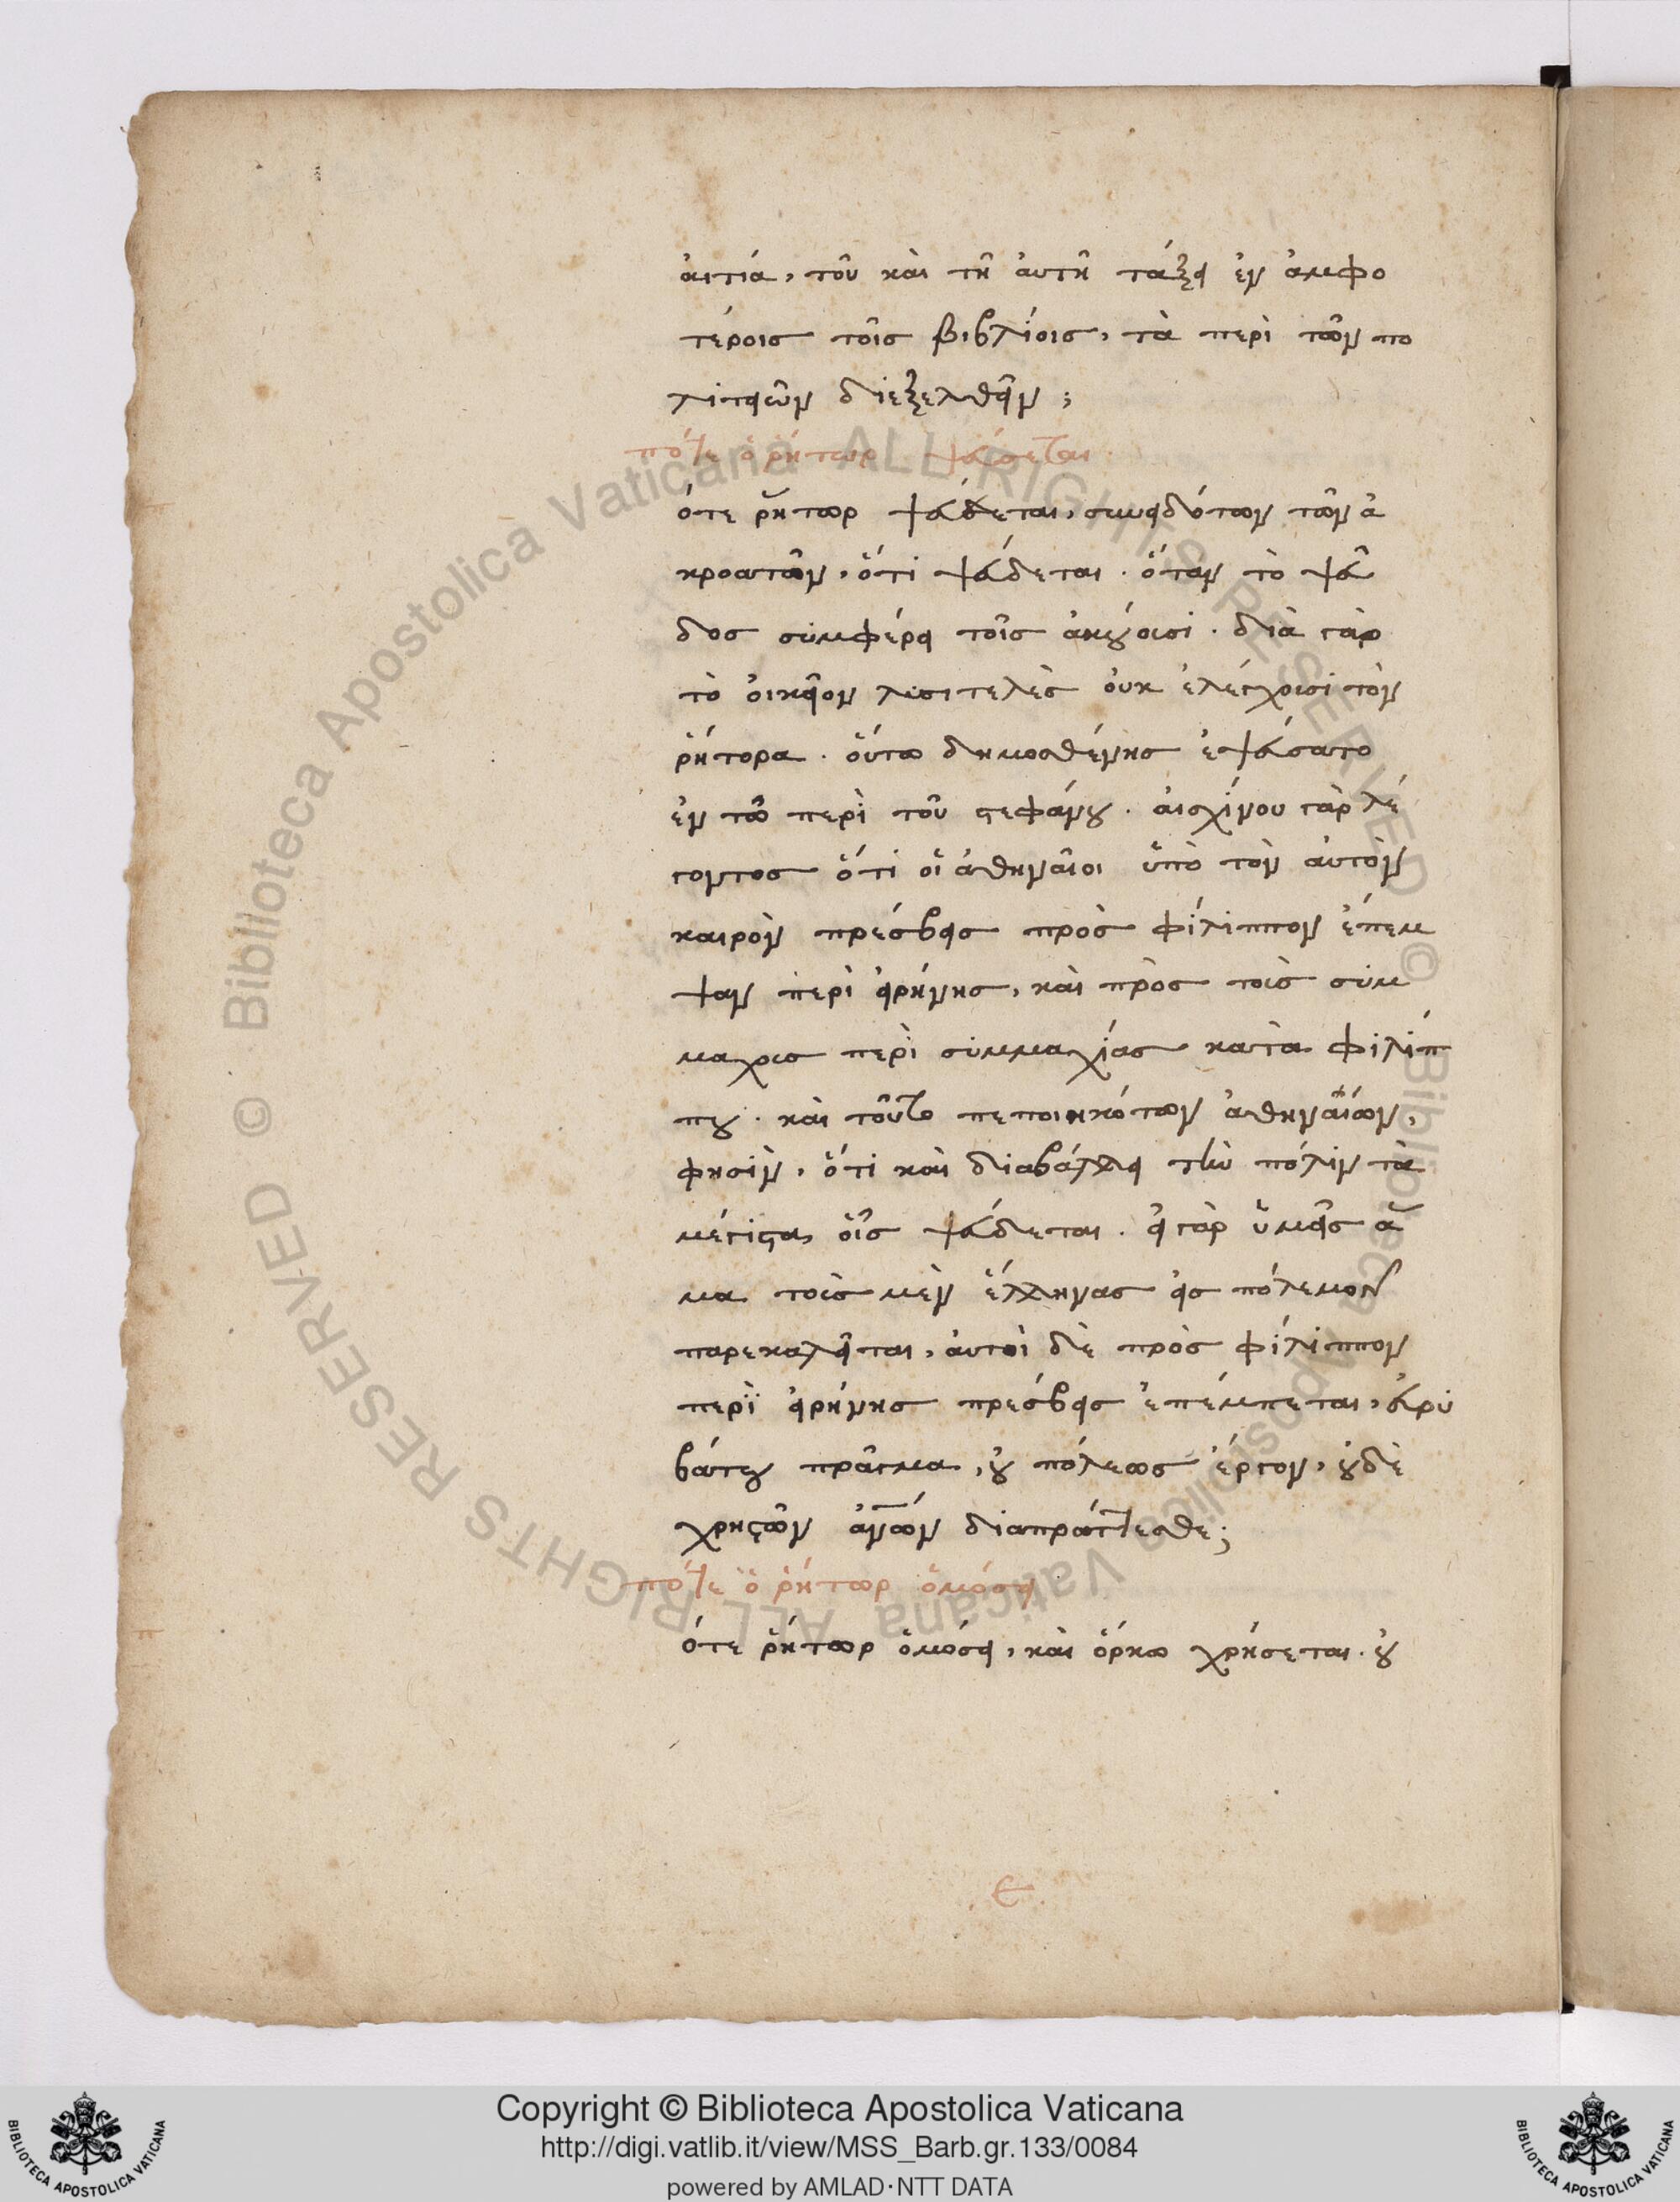 αἰτία, τοῦ καὶ τῆ αὐτῆ τάξει ἐν ἀμφο
τέροις τοῖς βιβλίοις, τὰ περὶ τῶν πο
λιτειῶν διεξελθεῖν;
πότε ὁ ῥήτωρ ψεύσεται
ότε ῥήτωρ ψεύδεται, συνειδότων τῶν ἀ
κροατῶν, ὅτι ψεύδεται. ὅταν τὸ ψεῦ
δος συμφέρει τοῖς ἀκούουσι. διὰ γὰρ
τὸ οἰκεῖον λυσιτελὲς οὐκ ἐλέγχουσι τὸν
ῥήτορα. οὕτω δημοσθένης ἐψεύσατο
ἐν τῶ περὶ τοῦ στεφάνου. αἰσχίνου γὰρ λέ
γοντος ὅτι οἱ ἀθηναῖοι ὑπὸ τὸν αὐτὸν
καιρὸν πρέσβεις πρὸς φίλιππον ἔπεμ
ψαν περὶ εἰρήνης, καὶ πρὸς τοὺς συμ
μάχους περὶ συμμαχίας κατὰ φιλίπ
που. καὶ τοῦτο πεποιηκότων ἀθηναίων,
φησὶν, ὅτι καὶ διαβάλλει τὴν πόλιν τὰ
μέγιστα, οἷς ψεύδεται. εἰ γὰρ ὑμεῖς ἅ
μα τοὺς μὲν ἕλληνας εἰς πόλεμον
παρεκαλεῖται, αὐτοὶ δὲ πρὸς φίλιππον
περὶ εἰρήνης πρέσβεις ἐπέμπεται, εὐρυ
βάτου πρᾶγμα, οὐ πόλεως ἔργον, οὐδὲ
χρηστῶν ἀνων διαπράττεσθε;
πότε ὁ ῥήτωρ ὀμόσει
ότε ῥήτωρ ὀμόσει, καὶ ὅρκω χρήσεται. οὐ
ε
Copyright © Biblioteca Apostolica Vaticana
http://digi.vatlib.it/view/MSS_Barb.gr.133/0084
powered by AMLAD·NTT DATA
BIBLIOTECA APOSTOLICA VATICANA
BIBLIOTECA APOSTOLICA VATICANA
© Biblioteca Apostolica Vaticana ALL RIGHTS RESERVED
© Biblioteca Apostolica Vaticana ALL RIGHTS RESERVED